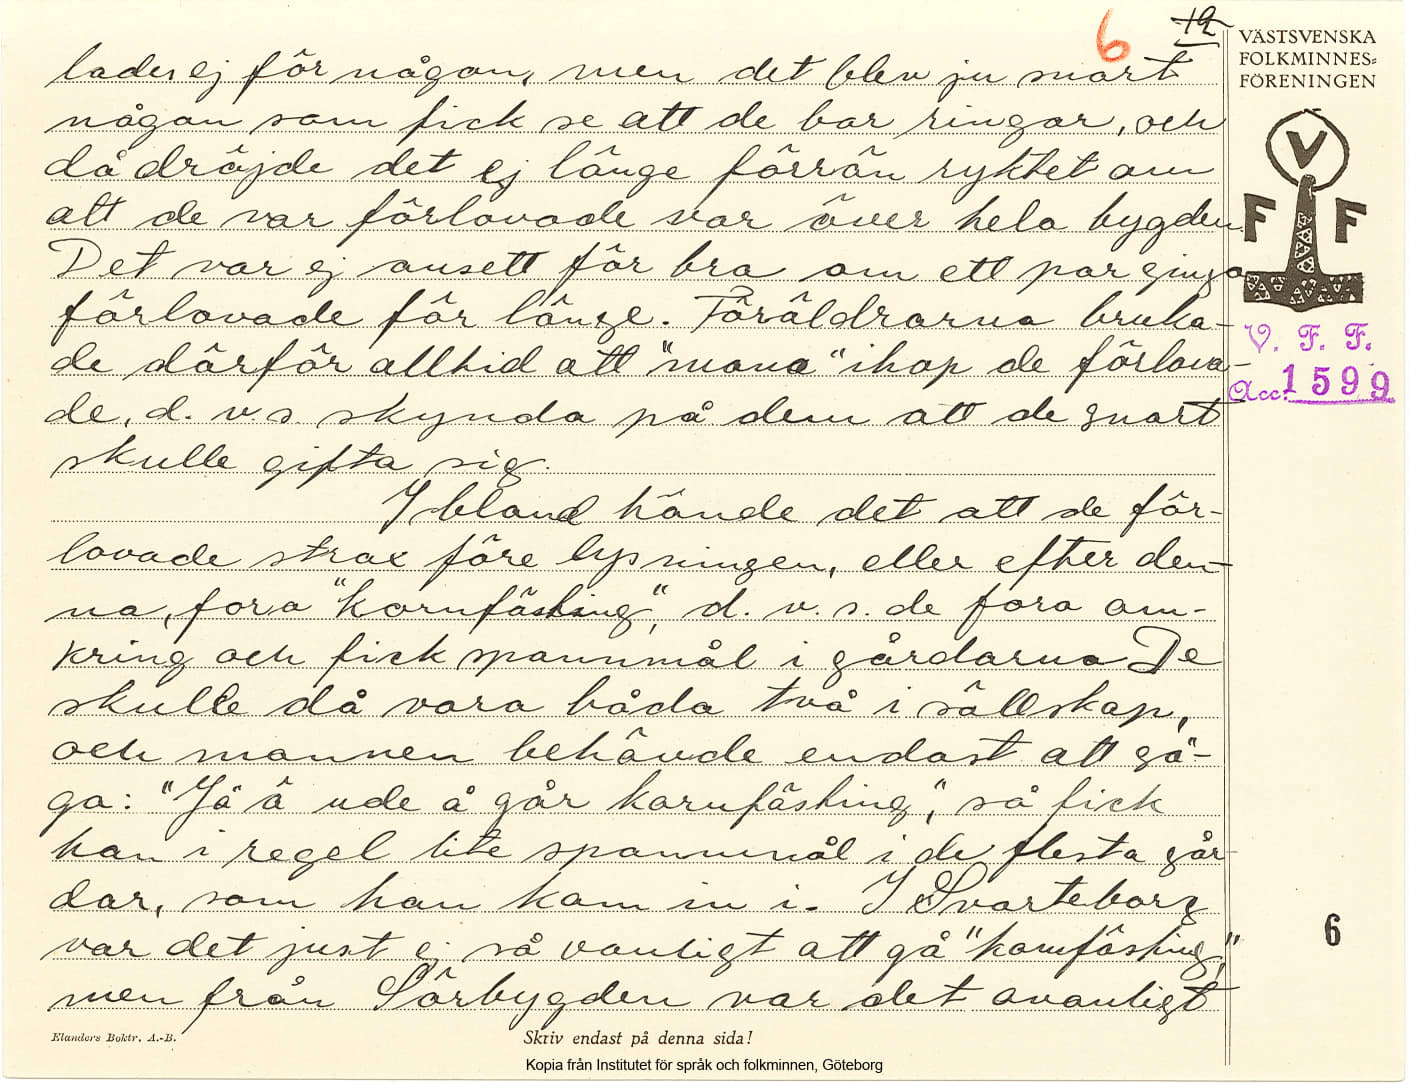 6 12
VÄSTSVENSKA
FOLKMINNES=
FÖRENINGEN
lades ej för någon, men det blev ju snart
någon som fick se att de bar ringar, och
då dröjde det ej länge förrän ryktet om
att de var förlovade var över hela bygden.
Det var ej ansett för bra om ett par gingo
förlovade för länge. Föräldrarna bruka-
de därför alltid att "mana" ihop de förlova-
de, d. v. s. skynda på dem att de snart
skulle gifta sig.
Ibland hände det att de för-
lovade strax före lysningen, eller efter den-
na, foro "kornfästing", d. v. s. de foro om-
kring och fick spannmål i gårdarna De
skulle då vara båda två i sällskap,
och mannen behövde endast att sä-
ga: "Jä ä ude å går kornfästing", så fick
han i regel lite spannmål i de flesta går-
dar, som han kom in i. I Svarteborg
var det just ej så vanligt att gå "kornfästing",
men från Sörbygden var det ovanligt
V
F F
V. F. F.
Acc. 1599
6
Elanders Boktr. A.-B.
Skriv endast på denna sida!
Kopia från Institutet för språk och folkminnen, Göteborg